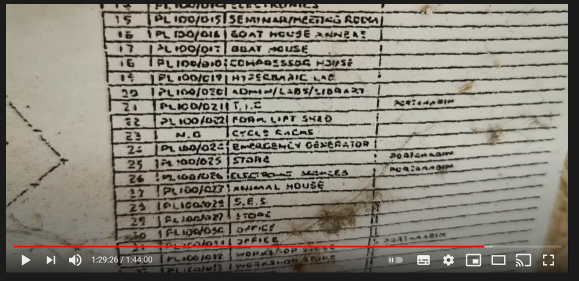 ELECTRONICS
15 PL100/015 SEMINAR/MEETING ROOM
16 PL100/016 BOAT HOUSE ANNEXE
17 PL100/017 BOAT HOUSE
18 PL100/018 COMPRESSOR HOUSE
19 PL100/019 HYPERBARIC LAB
20 PL100/020 ADMIN/LABS/LIBRARY
21 PL100/021 T.I.C PORTAKABIN
22 PL100/022 FORK LIFT SHED
23 N.A CYCLE RACKS
24 PL100/024 EMERGENCY GENERATOR
25 PL100/025 STORE PORTAKABIN
26 PL100/026 ELECTRONIC SERVICES PORTAKABIN
27 PL100/027 ANIMAL HOUSE
28 PL100/028 S.E.S
29 STORE
30 PL100/030 OFFICE
OFFICE PORTAKABIN
PL100/032 WORKSHOP
WORKSHOP
1:29:26 / 1:44:00